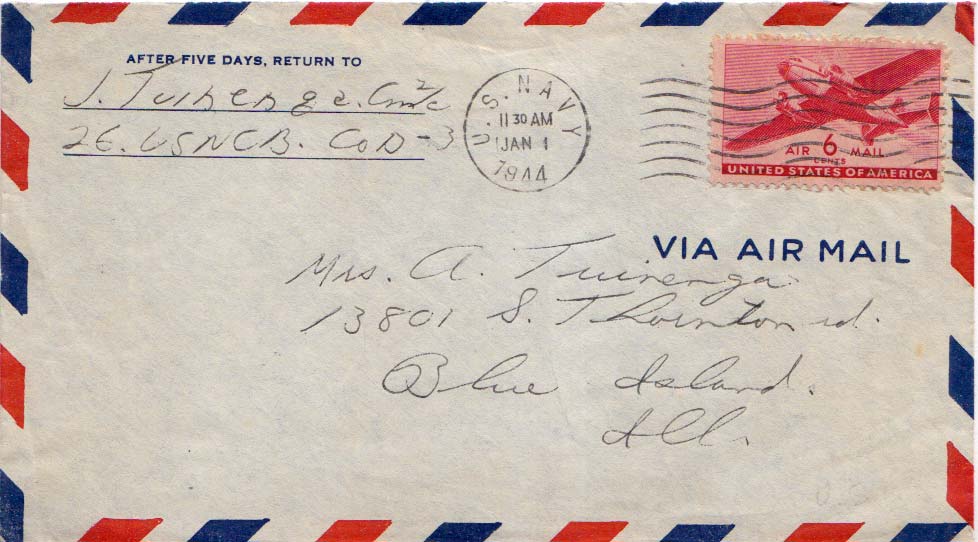 AFTER FIVE DAYS, RETURN TO
J. Tuinenga. Cm2/c
26. USNCB. CoD-3
U.S. NAVY
11 30 AM
JAN 1
1944
AIR 6 MAIL
CENTS
UNITED STATES OF AMERICA
VIA AIR MAIL
Mrs. A. Tuinenga
13801 S. Thornton rd.
Blue Island.
Ill.